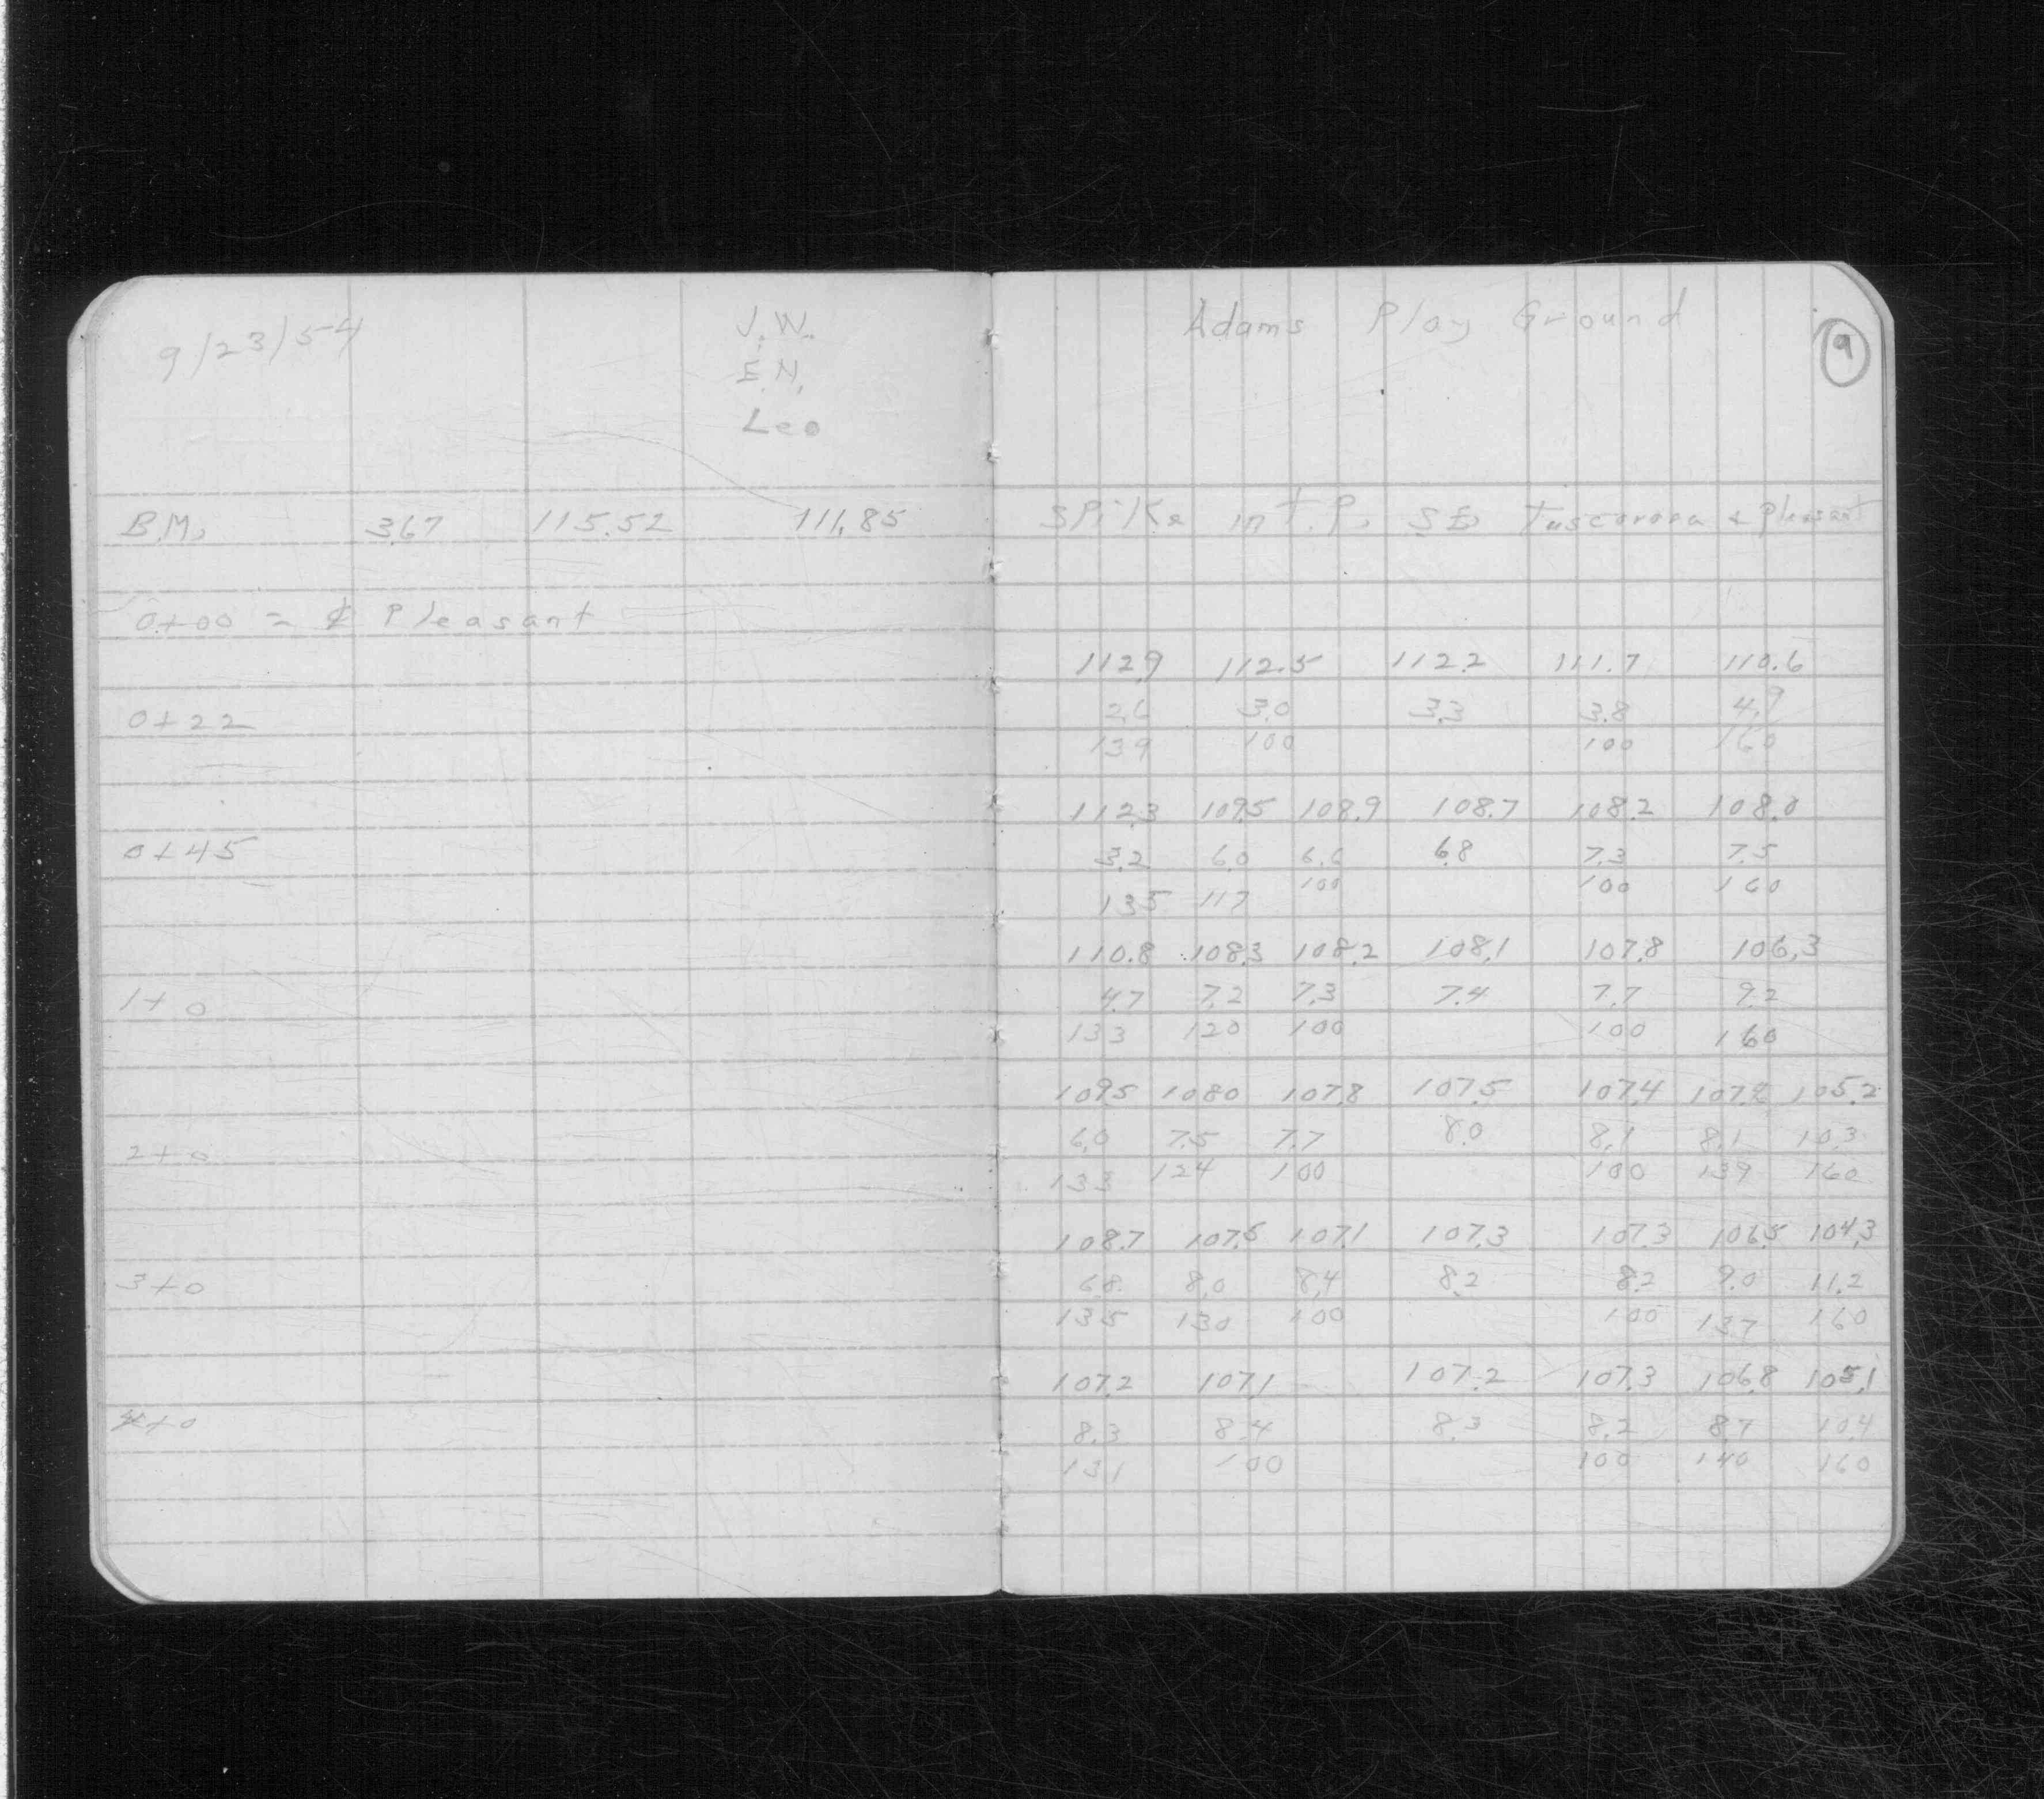 9/23/54
J.W.
E.N.
Leo
B.M. 3.67 115.52 111.85
0+00 = ℄ Pleasant
0+22
0+45
1+0
2+0
3+0
4+0
Adams Play Ground
9
SPiKe in T.P. S.E. Tuscorora & Pleasant
112.9 112.5 112.2 111.7 110.6
2.6 3.0 3.3 3.8 4.9
139 100 100 160
112.3 109.5 108.9 108.7 108.2 108.0
3.2 6.0 6.6 6.8 7.3 7.5
135 117 100 100 160
110.8 108.3 108.2 108.1 107.8 106.3
4.7 7.2 7.3 7.4 7.7 9.2
133 120 100 100 160
109.5 108.0 107.8 107.5 107.4 107.4 105.2
6.0 7.5 7.7 8.0 8.1 8.1 10.3
133 124 100 100 139 160
108.7 107.5 107.1 107.3 107.3 106.5 104.3
6.8 8.0 8.4 8.2 8.2 9.0 11.2
135 130 100 100 137 160
107.2 107.1 107.2 107.3 106.8 105.1
8.3 8.4 8.3 8.2 8.7 10.4
131 100 100 140 160